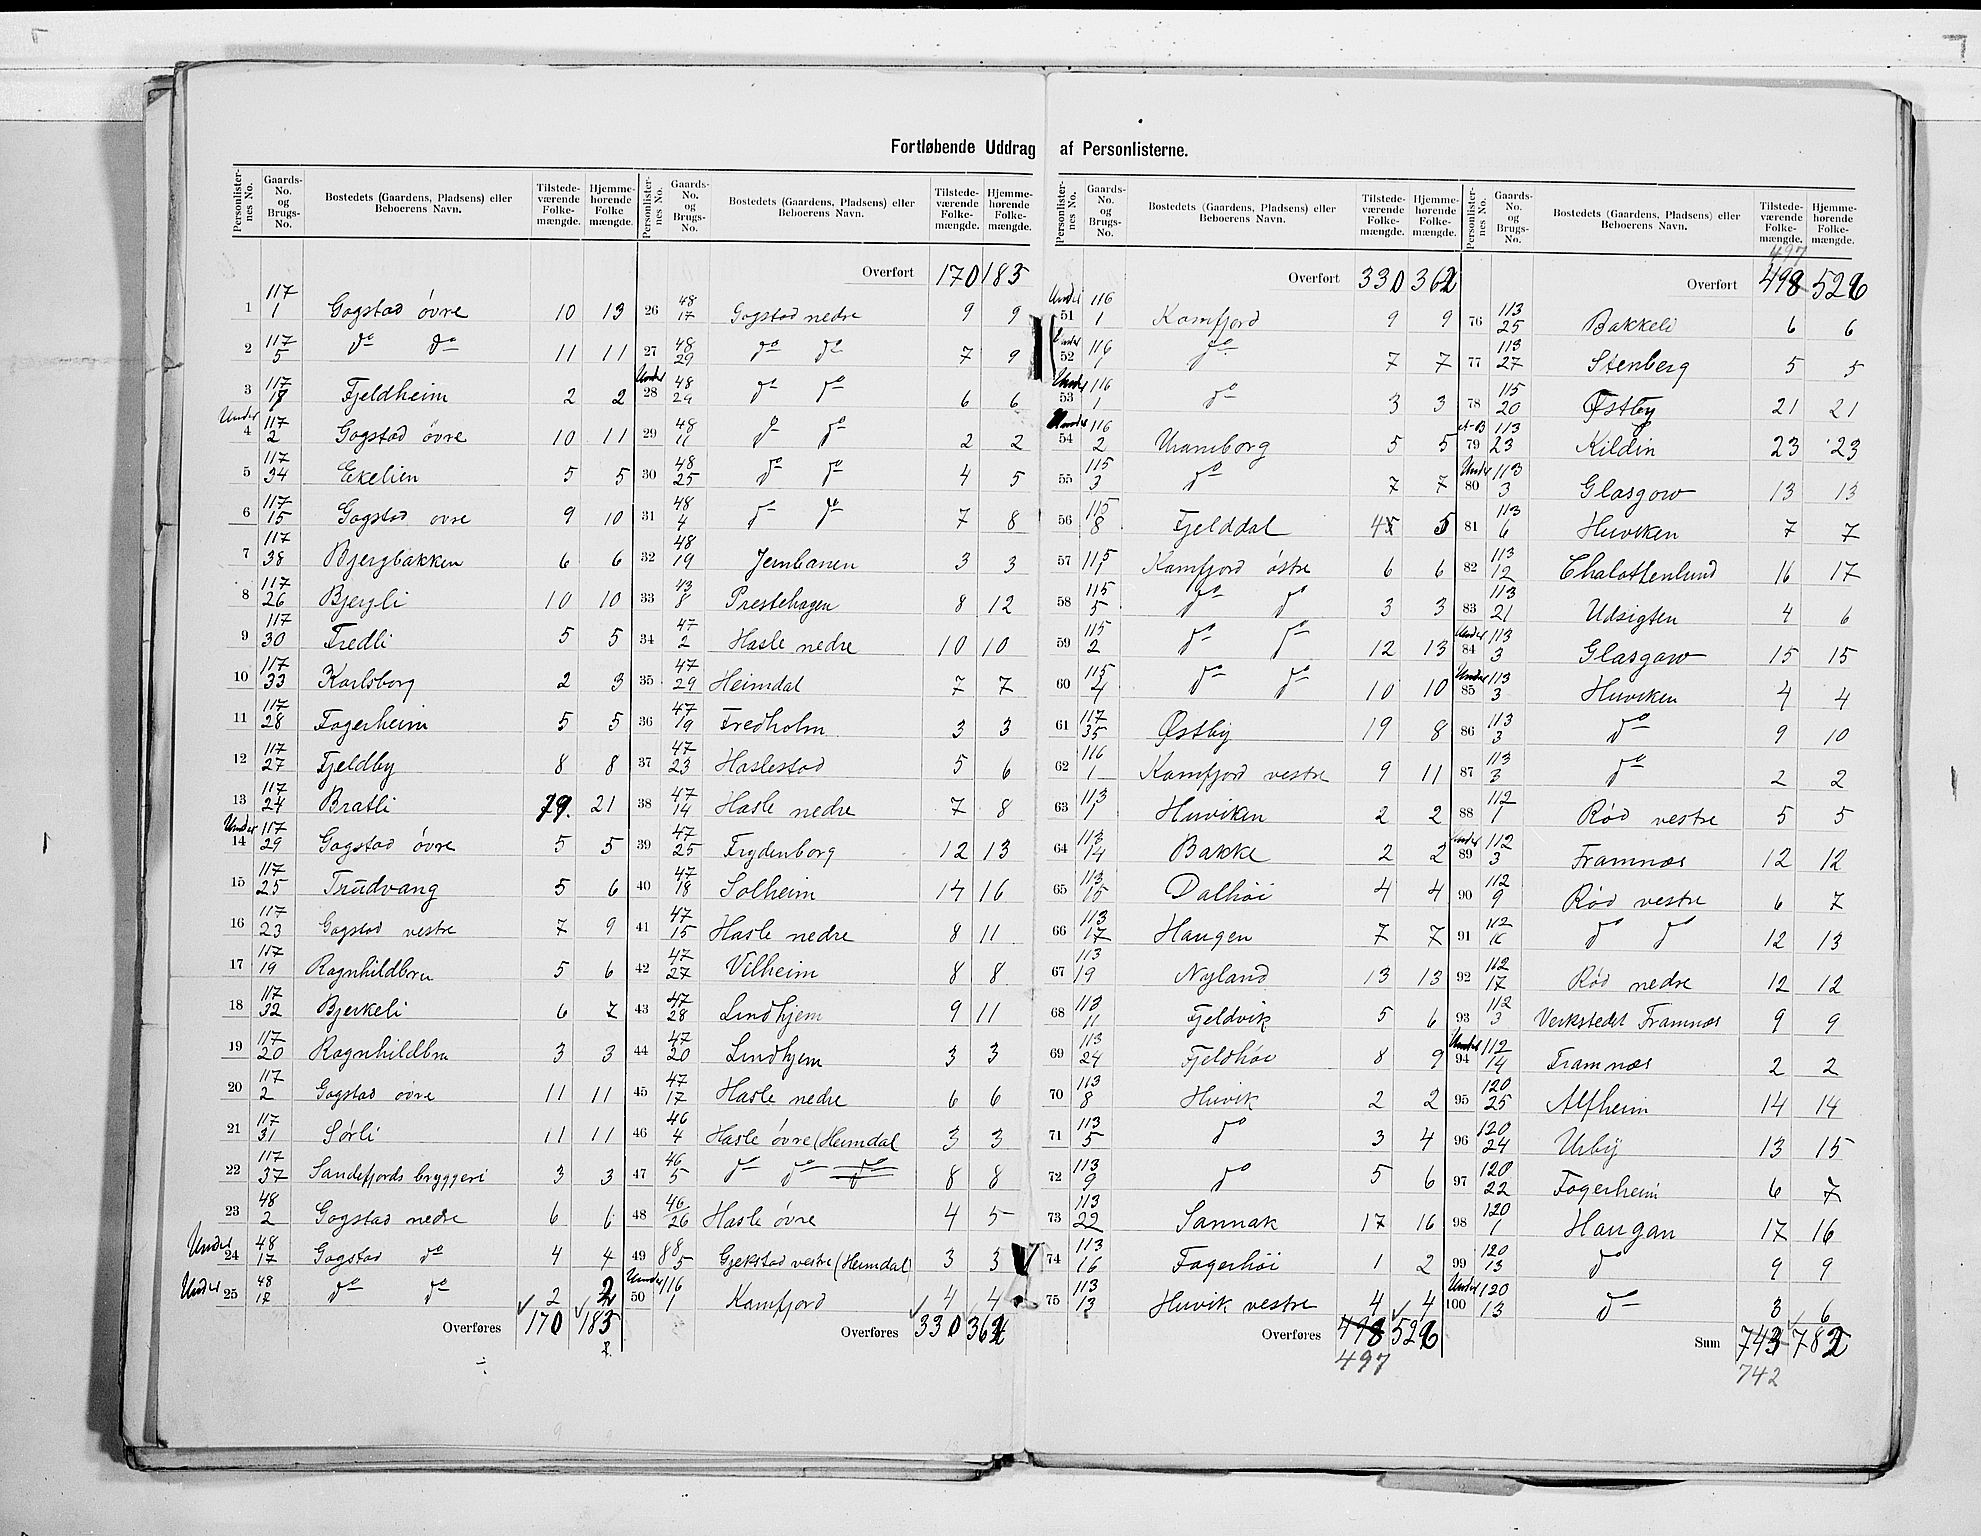 Fortløbende Uddrag af Personlisterne.
Personlister-nes No. Gaards-No. og Brugs-No. Bostedets (Gaardens, Pladsens) eller Beboerens Navn. Tilstede-værende Folke-mængde. Hjemme-hørende Folke mængde.
1 117/1 Gogstad övre 10 13
2 117/5 do do 11 11
3 117/ Fjeldheim 2 2
Under 4 117/2 Gogstad övre 10 11
5 117/34 Ekelien 5 5
6 117/15 Gogstad ovre 9 10
7 117/38 Bjergbakken 6 6
8 117/26 Bjergli 10 10
9 117/30 Fredli 5 5
10 117/33 Karlsborg 2 3
11 117/28 Fagerheim 5 5
12 117/27 Fjeldby 8 8
13 117/24 Bratli 19. 21
Under 14 117/29 Gogstad övre 5 5
15 117/25 Trudvang 5 6
16 117/23 Gogstad vestre 7 9
17 117/19 Ragnhildbru 5 6
18 117/32 Bjerkeli 6 7
19 117/20 Ragnhildbru 3 3
20 117/2 Gogstad övre 11 11
21 117/31 Sørli 11 11
22 117/37 Sandefjords bryggeri 3 3
23 48/2 Gogstad nedre 6 6
Under 24 48/17 Gogstad do 4 4
Under 25 48/12 do do 2 2
Overføres 170 183
Personlister-nes No. Gaards-No. og Brugs-No. Bostedets (Gaardens, Pladsens) eller Beboerens Navn. Tilstede-værende Folke-mængde. Hjemme-hørende Folke-mængde.
Overført 170 183
26 48/17 Gogstad nedre 9 9
27 48/29 do do 7 9
Under 28 48/29 do do 6 6
29 48/11 do do 2 2
30 48/25 do do 4 5
31 48/4 do do 7 8
32 48/19 Jernbanen 3 3
33 43/8 Prestehagen 8 12
34 47/2 Hasle nedre 10 10
35 47/29 Heimdal 7 7
36 47/19 Fredholm 3 3
37 47/23 Haslestad 5 6
38 47/14 Hasle nedre 7 8
39 47/25 Frydenborg 12 13
40 47/18 Solheim 14 16
41 47/15 Hasle nedre 8 11
42 47/27 Vilheim 8 8
43 47/28 Lindhjem 9 11
44 47/20 Lindhjem 3 3
45 47/17 Hasle nedre 6 6
46 46/4 Hasle övre (Heimdal 3 3
47 46/5 do do do 8 8
48 46/26 Hasle övre 4 5
49 88/5 Gjekstad vestre (Heimdal) 3 3
Under 50 116/1 Kamfjord 4 4
Overføres 330 362
Personlister-nes No. Gaards-No. og Brugs-No. Bostedets (Gaardens, Pladsens) eller Beboerens Navn. Tilstede-værende Folke-mængde. Hjemme-hørende Folke-mængde.
Overført 330 362
Under 51 116/1 Kamfjord 9 9
Under 52 116/1 do 7 7
Under 53 116/1 do 3 3
Under 54 116/2 Uranienborg 5 5
55 115/3 do 7 7
56 115/8 Fjelddal 45 5
57 115/1 Kamfjord östre 6 6
58 115/5 do do 3 3
59 115/2 do do 12 13
60 115/4 do do 10 10
61 117/35 Østby 19 8
62 116/1 Kamfjord vestre 9 11
63 113/1 Huviken 2 2
64 113/14 Bakke 2 2
65 113/15 Dalhöi 4 4
66 113/17 Haugen 7 7
67 113/19 Nyland 13 13
68 113/11 Fjeldvik 5 6
69 113/24 Fjeldhöi 8 9
70 113/8 Huvik 2 2
71 113/5 do 3 4
72 113/9 do 5 6
73 113/22 Sannak 17 16
74 113/16 Fagerhöi 1 2
75 113/13 Huvik vestre 4 4
Overføres 498 526
497
Personlister-nes No. Gaards-No. og Brugs-No. Bostedets (Gaardens, Pladsens) eller Beboerens Navn. Tilstede-værende Folke-mængde. Hjemme-hørende Folke-mængde.
497
Overført 498 526
76 113/25 Bakkeli 6 6
77 113/27 Stenberg 5 5
78 115/20 Østby 21 21
A-B 79 113/23 Kildin 23 23
Under 80 113/3 Glasgow 13 13
81 113/6 Huviken 7 7
82 113/12 Chalottenlund 16 17
83 113/21 Udsigten 4 6
Under 84 113/3 Glasgow 15 15
Under 85 113/3 Huviken 4 4
86 113/3 do 9 10
87 113/3 do 2 2
88 112/1 Rød vestre 5 5
Under 89 112/3 Framnæs 12 12
90 112/9 Rød vestre 6 7
91 112/16 do do 12 13
92 112/17 Rød nedre 12 12
93 112/3 Verkstedet Framnæs 9 9
Under 94 112/14 Framnæs 2 2
95 120/25 Alfheim 14 14
96 120/24 Urby 13 15
97 120/22 Fagerheim 6 7
98 120/1 Haugan 17 16
99 120/13 do 9 9
Under 100 120/13 do 3 6
Sum 743 782
742